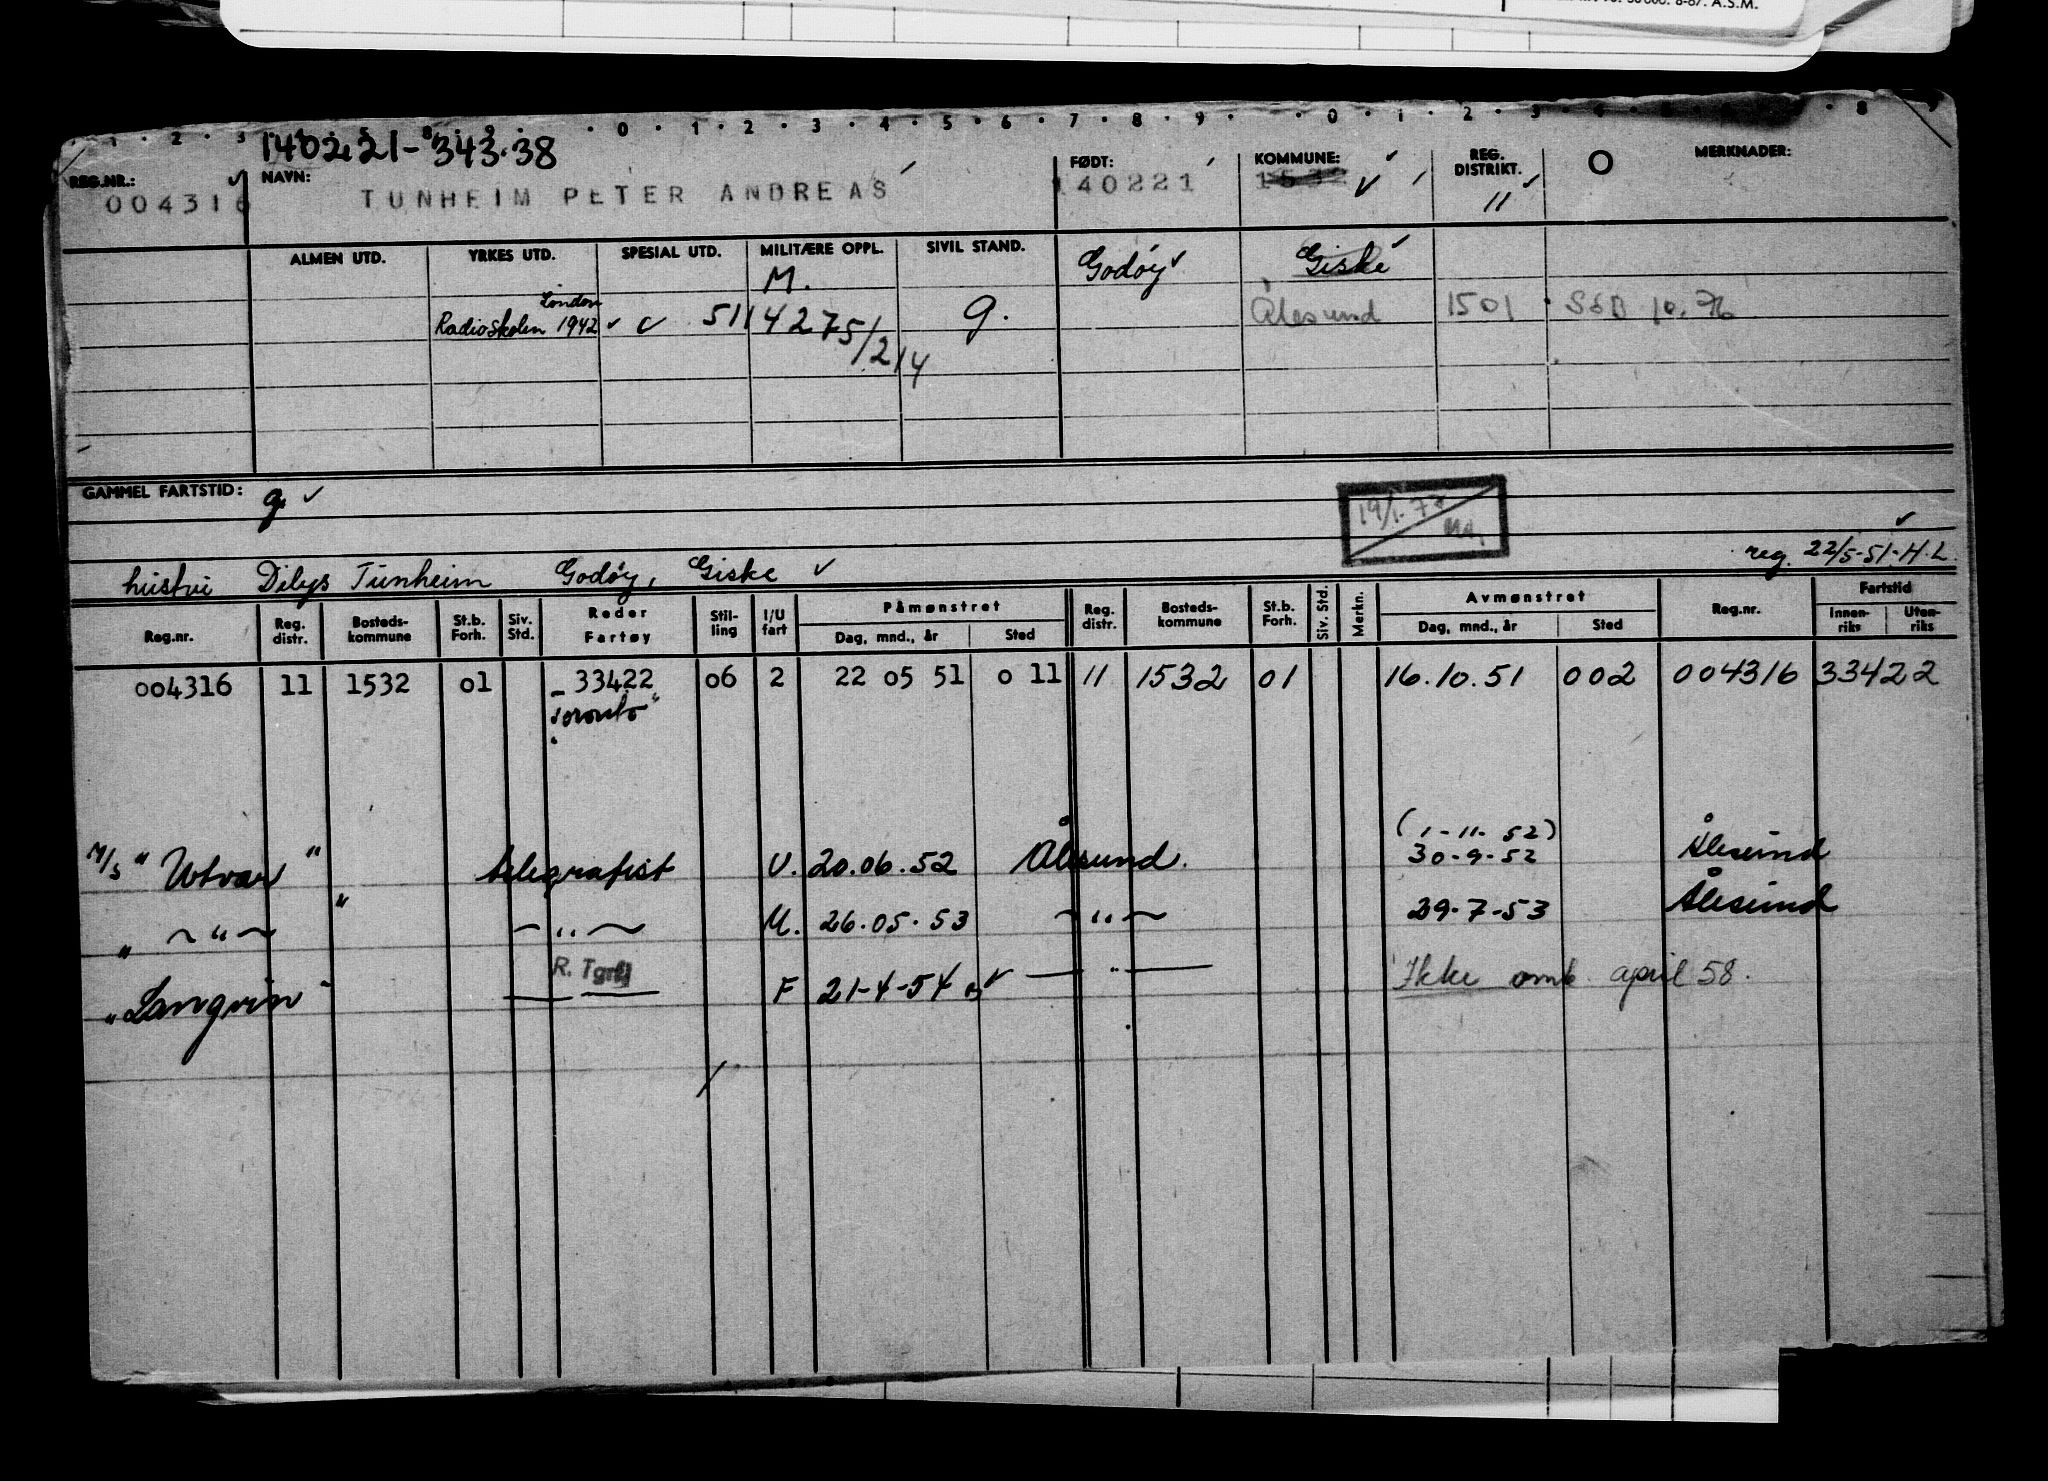 A.S.M.
140221-343.38
REG.NR.: NAVN: FØDT: KOMMUNE: REG. DISTRIKT. MERKNADER:
004316 TUNHEIM PETER ANDREAS 140221 1532 11
ALMEN UTD. YRKES UTD. SPESIAL UTD. MILITÆRE OPPL. SIVIL STAND. Godøy Giske
M.
London
Radioskolen 1942 5114275/214 g. Ålesund 1501 10.76
GAMMEL FARTSTID: g
19/1.78
reg. 22/5-51-H.L.
hustru Dilys Tunheim Godøy, Giske
Reg.nr. Reg. distr. Bosteds-kommune St.b. Forh. Siv. Std. Reder Fartøy Stil-ling I/U fart Påmønstret Dag, mnd., år Sted Reg. distr. Bosteds-kommune St.b. Forh. Siv. Std. Merkn. Avmønstret Dag, mnd., år Sted Reg.nr. Fartstid Innen-riks Uten-riks
004316 11 1532 01 33422 06 2 22 05 51 0 11 11 1532 01 16.10.51 002 004316 33422
"Toronto"
(1-11-52)
M/S "Utvær" telegrafist U. 20.06.52 Ålesund. 30-9-52 Ålesund
" ~ " ~ " ~ " ~ U. 26.05.53 ~ " ~ 29-7-53 Ålesund
R. Tgrf
"Langvin" F 21-4-54 — " — Ikke omb. april 58.